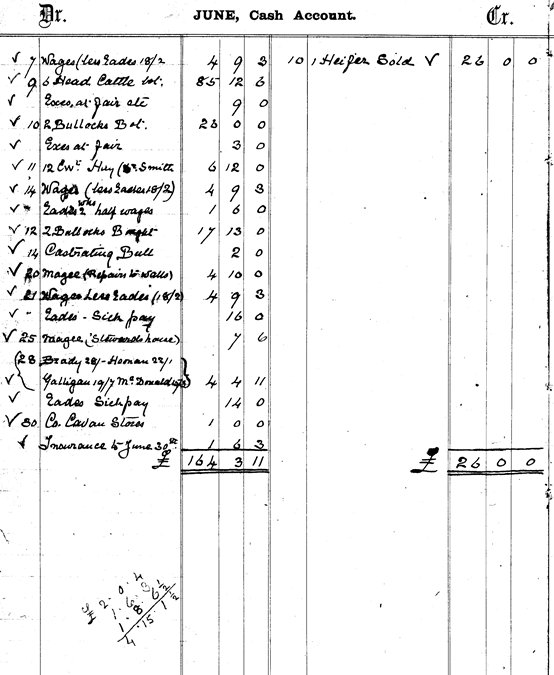 Dr. JUNE, Cash Account. Cr.
√ 7 Wages (Less Eades 18/2 4 9 3 10 1 Heifer Sold √ 26 0 0
√ 9 6 Head Cattle bot. 85 12 6
√ Exes. at fair etc 9 0
√ 10 2 Bullocks Bot. 23 0 0
√ Exes at fair 3 0
√ 11 12 Cwt. Hay Smith 6 12 0
√ 14 Wages (Less Eades 18/2) 4 9 3
√ " Eades 2 wks half wages 1 6 0
√ 12 2 Bullocks Bought 17 13 0
√ 14 Castrating Bull 2 0
√ 20 Magee (Repairs to walls) 4 10 0
√ 21 Wages Less Eades (18/2) 4 9 3
√ " Eades - Sick pay 16 0
√ 25 Magee (Stewards house) 7 6
28 Brady 28/- Heenan 22/1
√ Galligan 19/7 McDonald 4 4 11
√ Eades Sick pay 14 0
√ 30 Co. Cavan Stores 1 0 0
√ Insurance to June 30th 1 6 3
£ 164 3 11 £ 26 0 0
2 . 0 . 4
4 . 15 . 1